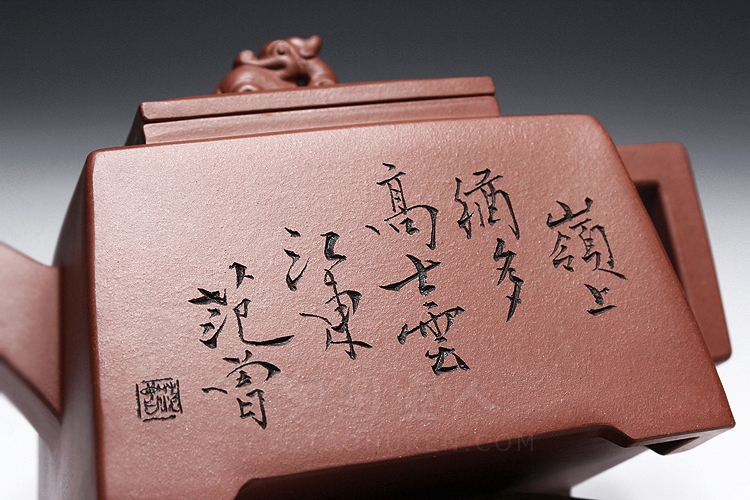 嶺上
猶多
高士雲
江東
范曾